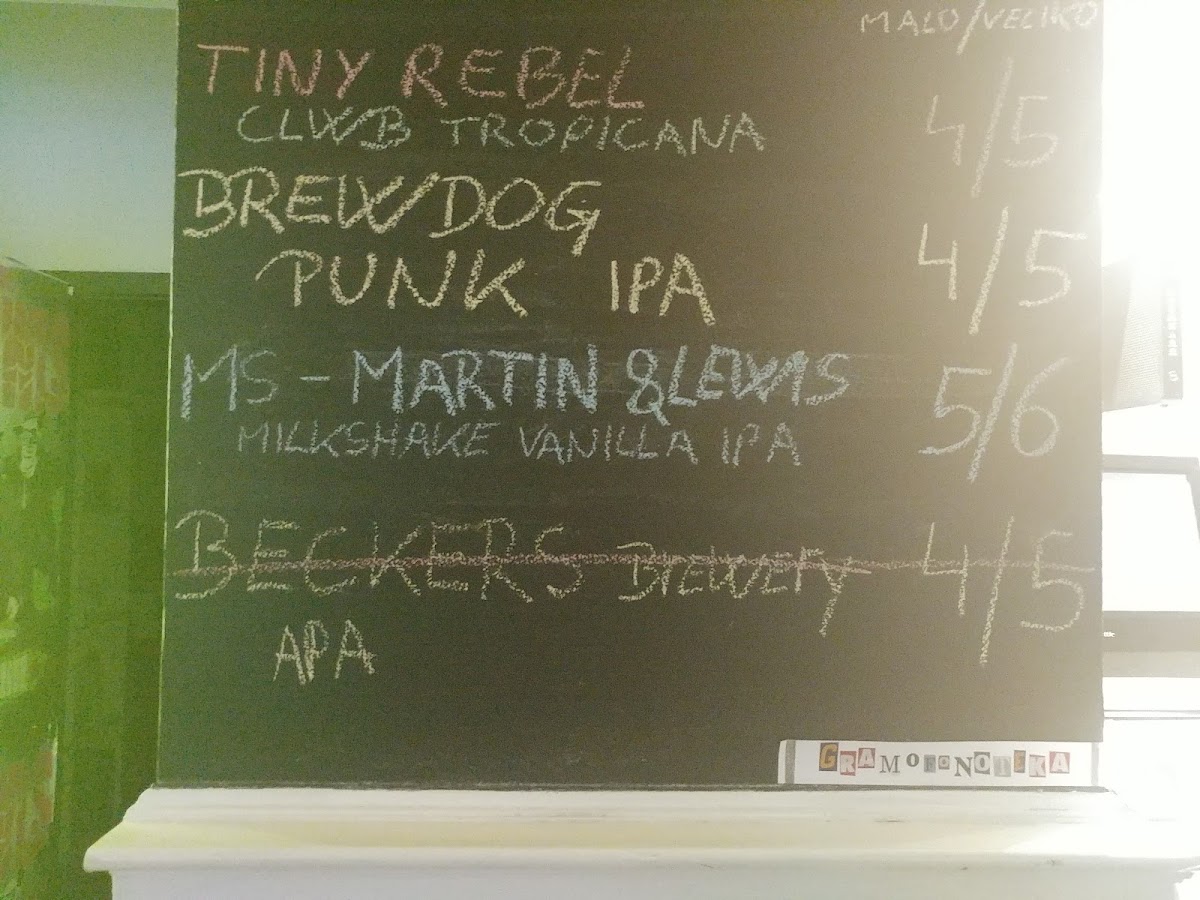 MALO/VELIKO
TINY REBEL
CLWB TROPICANA 4/5
BREWDOG
PUNK IPA 4/5
MS - MARTIN & LEWIS 5/6
MILKSHAKE VANILLA IPA
BECKERS BREWERY 4/5
APA
GRAMOFONOTEKA